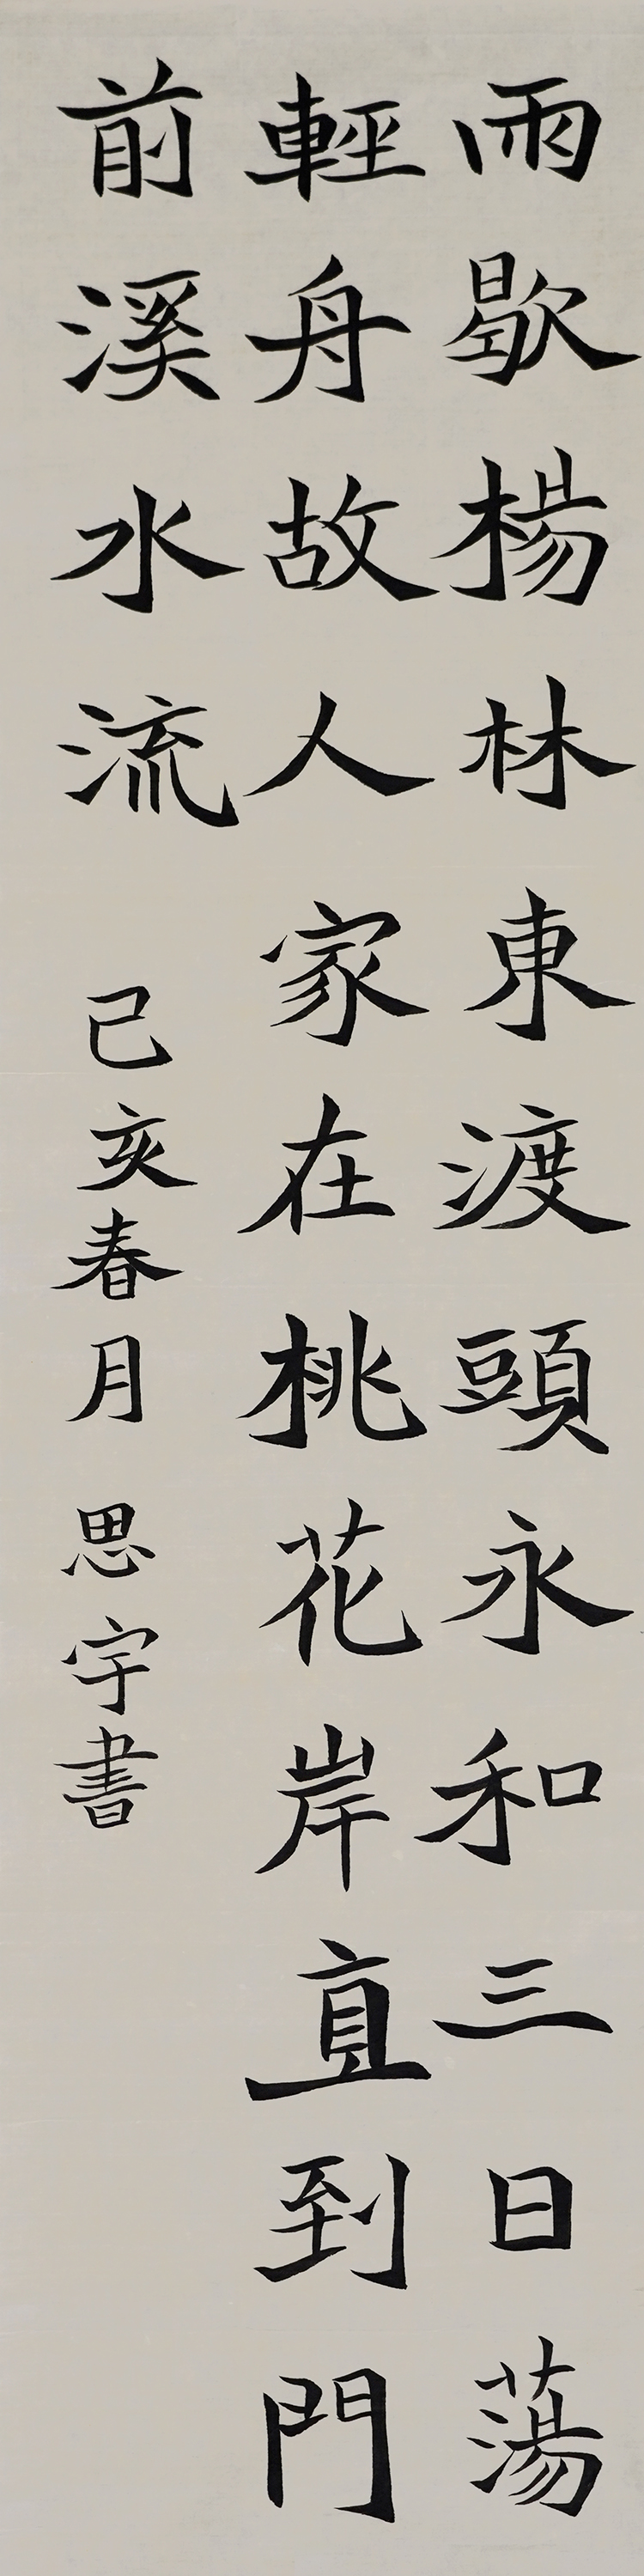 雨歇楊林東渡頭永和三日蕩
輕舟故人家在桃花岸直到門
前溪水流
己亥春月思宇書